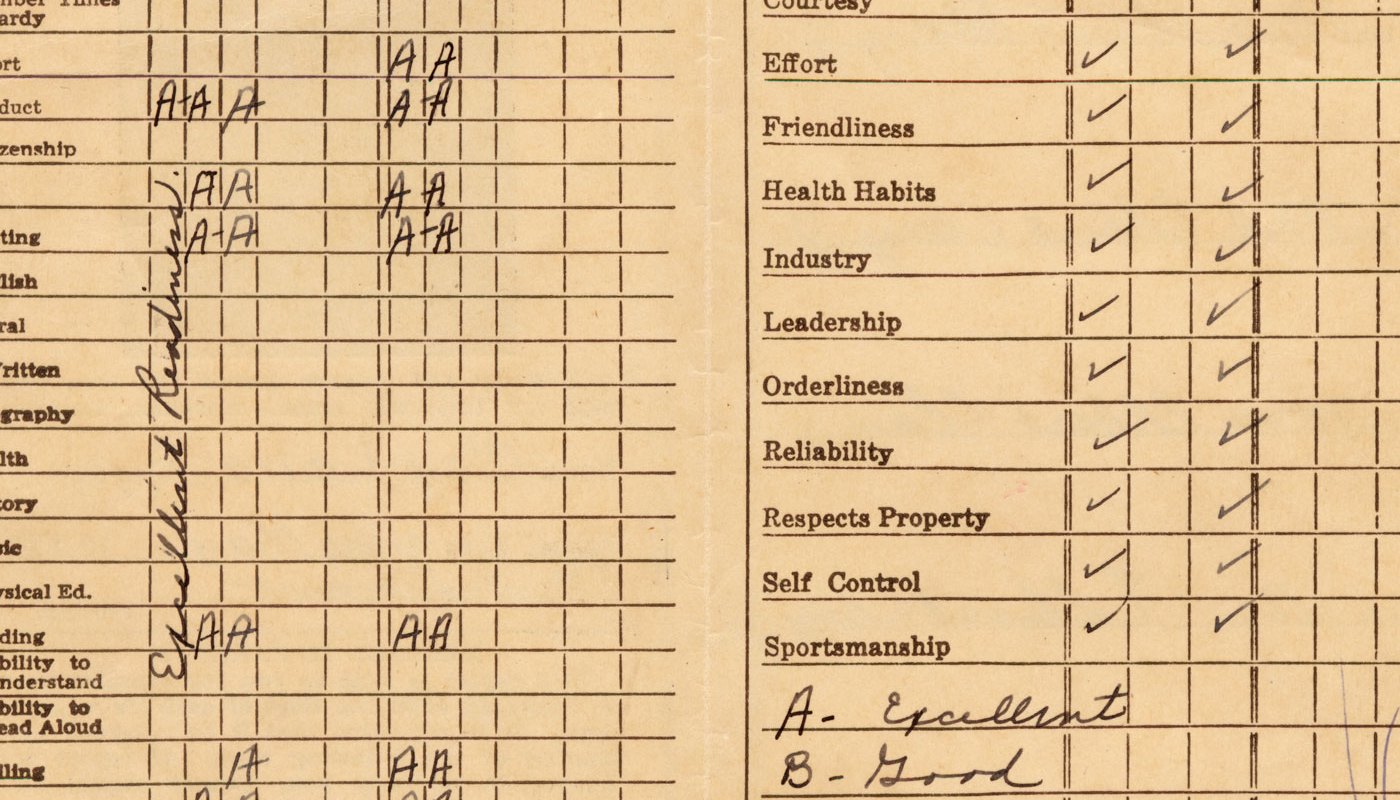 ardy
ort A A
duct A+ A A A A
zenship
A A A A
ting A A A A
lish
ral
ritten
graphy
lth
tory
sic
ysical Ed.
ding A A A A
bility to
nderstand
bility to
ead Aloud
lling A A A
Excellent Readiness.
Courtesy
Effort ✓ ✓
Friendliness ✓ ✓
Health Habits ✓ ✓
Industry ✓ ✓
Leadership ✓ ✓
Orderliness ✓ ✓
Reliability ✓ ✓
Respects Property ✓ ✓
Self Control ✓ ✓
Sportsmanship ✓ ✓
A- Excellent
B- Good